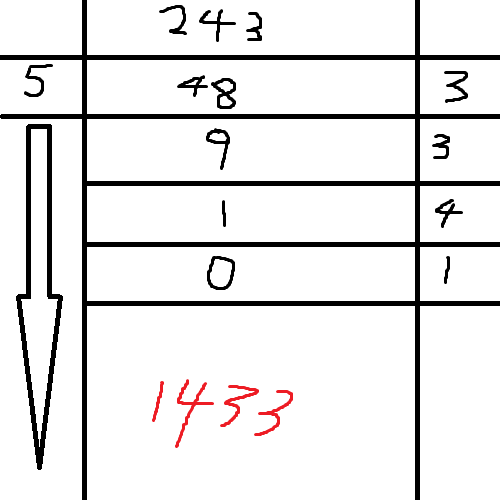 243
5 48 3
9 3
1 4
0 1
1433